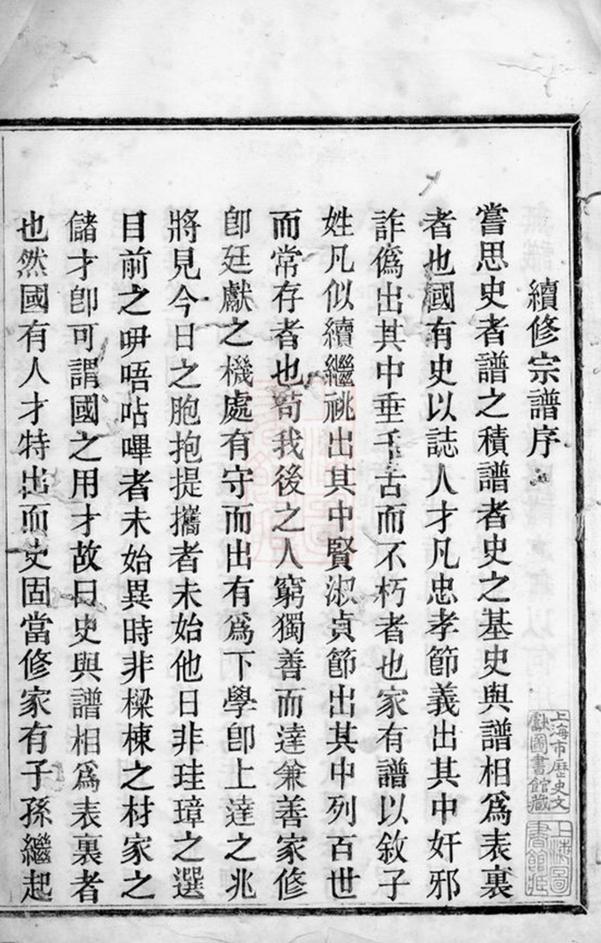 續修宗譜序
嘗思史者譜之積譜者史之基史與譜相爲表裏
者也國有史以誌人才凡忠孝節義出其中奸邪
詐僞出其中垂千古而不朽者也家有譜以敘子
姓凡似續繼祧出其中賢淑貞節出其中列百世
而常存者也苟我後之人窮獨善而達兼善家修
卽廷獻之機處有守而出有爲下學卽上達之兆
將見今日之胞抱提攜者未始他日非珪璋之選
目前之吚唔呫嗶者未始異時非樑棟之材家之
儲才卽可謂國之用才故曰史與譜相爲表裏者
也然國有人才特出而史固當修家有子孫繼起
上海市歷史文
獻圖書館藏
上海圖
書館藏